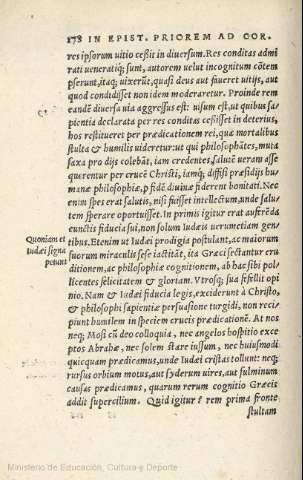 178 IN EPIST. PRIOREM AD COR.
res ipsorum uitio ceßit in diuersum. Res conditas admi
rati ueneratiq; sunt, autorem uelut incognitum cōtem
pserunt, itaq; uixerūt, quasi deus aut faueret uitijs, aut
quod condidisset non idem moderaretur. Proinde rem
eandē diuersa uia aggressus est: uisum est, ut quibus sa
pientia declarata per res conditas ceßisset in deterius,
hos restitueret per prædicationem rei, quæ mortalibus
stulta & humilis uideretur: ut qui philosophātes, muta
saxa pro dijs colebāt, iam credentes, salutē ueram asse
querentur per crucē Christi, iamq; diffisi præsidijs hu
manæ philosophiæ, p fidē diuinæ fiderent bonitati. Nec
enim spes erat salutis, nisi fuisset intellectum, unde salu
tem sperare oportuisset. In primis igitur erat auferēda
cunctis fiducia sui, non solum Iudæis uerumetiam gen
Quoniam et
Iudæi signa
petunt
tibus. Etenim ut Iudæi prodigia postulant, ac maiorum
suorum miraculis sese iactitāt, ita Græci sectantur eru
ditionem, ac philosophiæ cognitionem, ab hac sibi pol
licentes felicitatem & gloriam. Vtrosq; sua fefellit opi
nio. Nam & Iudæi fiducia legis, exciderunt à Christo,
& philosophi sapientiæ persuasione turgidi, non reci
piunt humilem in speciem crucis prædicationē. At nos
neq; Mosi cū deo colloquia, nec angelos hospitio exce
ptos Abrahæ, nec solem stare iussum, nec huiusmodi
quicquam prædicamus, unde Iudæi cristas tollunt: neq;
rursus orbium motus, aut syderum uires, aut fulminum
causas prædicamus, quarum rerum cognitio Græcis
addit supercilium. Quid igitur? rem prima fronte
stultam
Ministerio de Educación, Cultura y Deporte